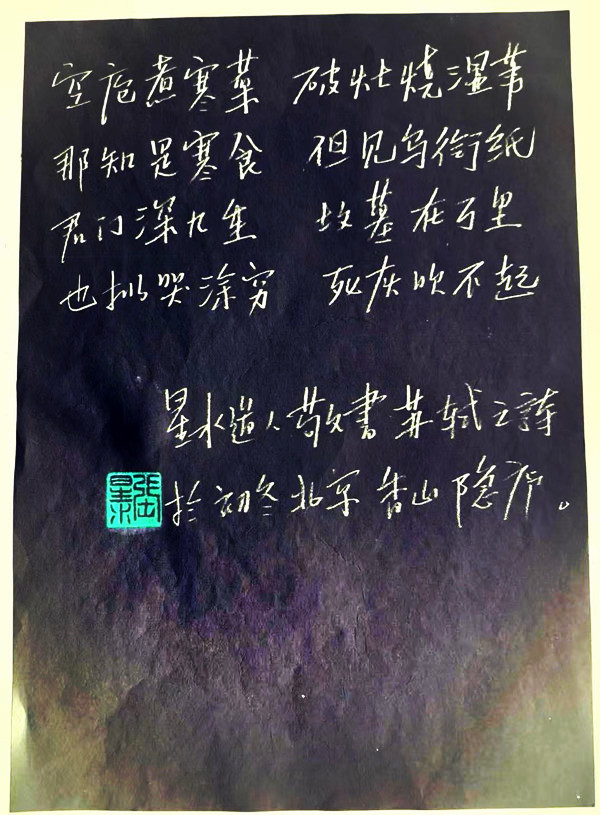 空庖煮寒菜 破灶烧湿苇
那知是寒食 但见乌衔纸
君门深九重 坟墓在万里
也拟哭涂穷 死灰吹不起
星水道人敬书苏轼之詩
於初冬北京香山隐庐。